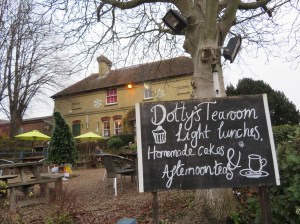 Dotty's Tearoom
Light lunches,
Homemade cakes
& Afternoon teas